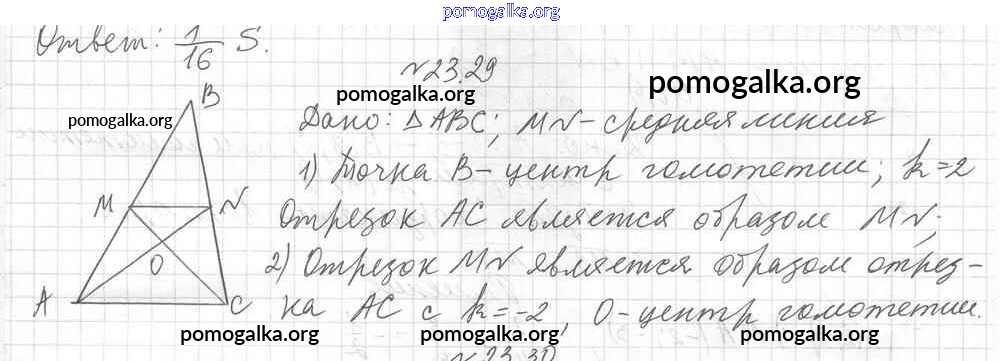 pomogalka.org
Ответ: 1/16 S.
N 23.29
pomogalka.org
pomogalka.org
pomogalka.org
B
M
N
O
A
C
Дано: Δ ABC; MN - средняя линия
1) Точка B - центр гомотетии; k = 2
Отрезок AC является образом MN;
2) Отрезок MN является образом отрез-
ка AC с k = -2, O - центр гомотетии.
pomogalka.org
pomogalka.org
pomogalka.org
N 23.30